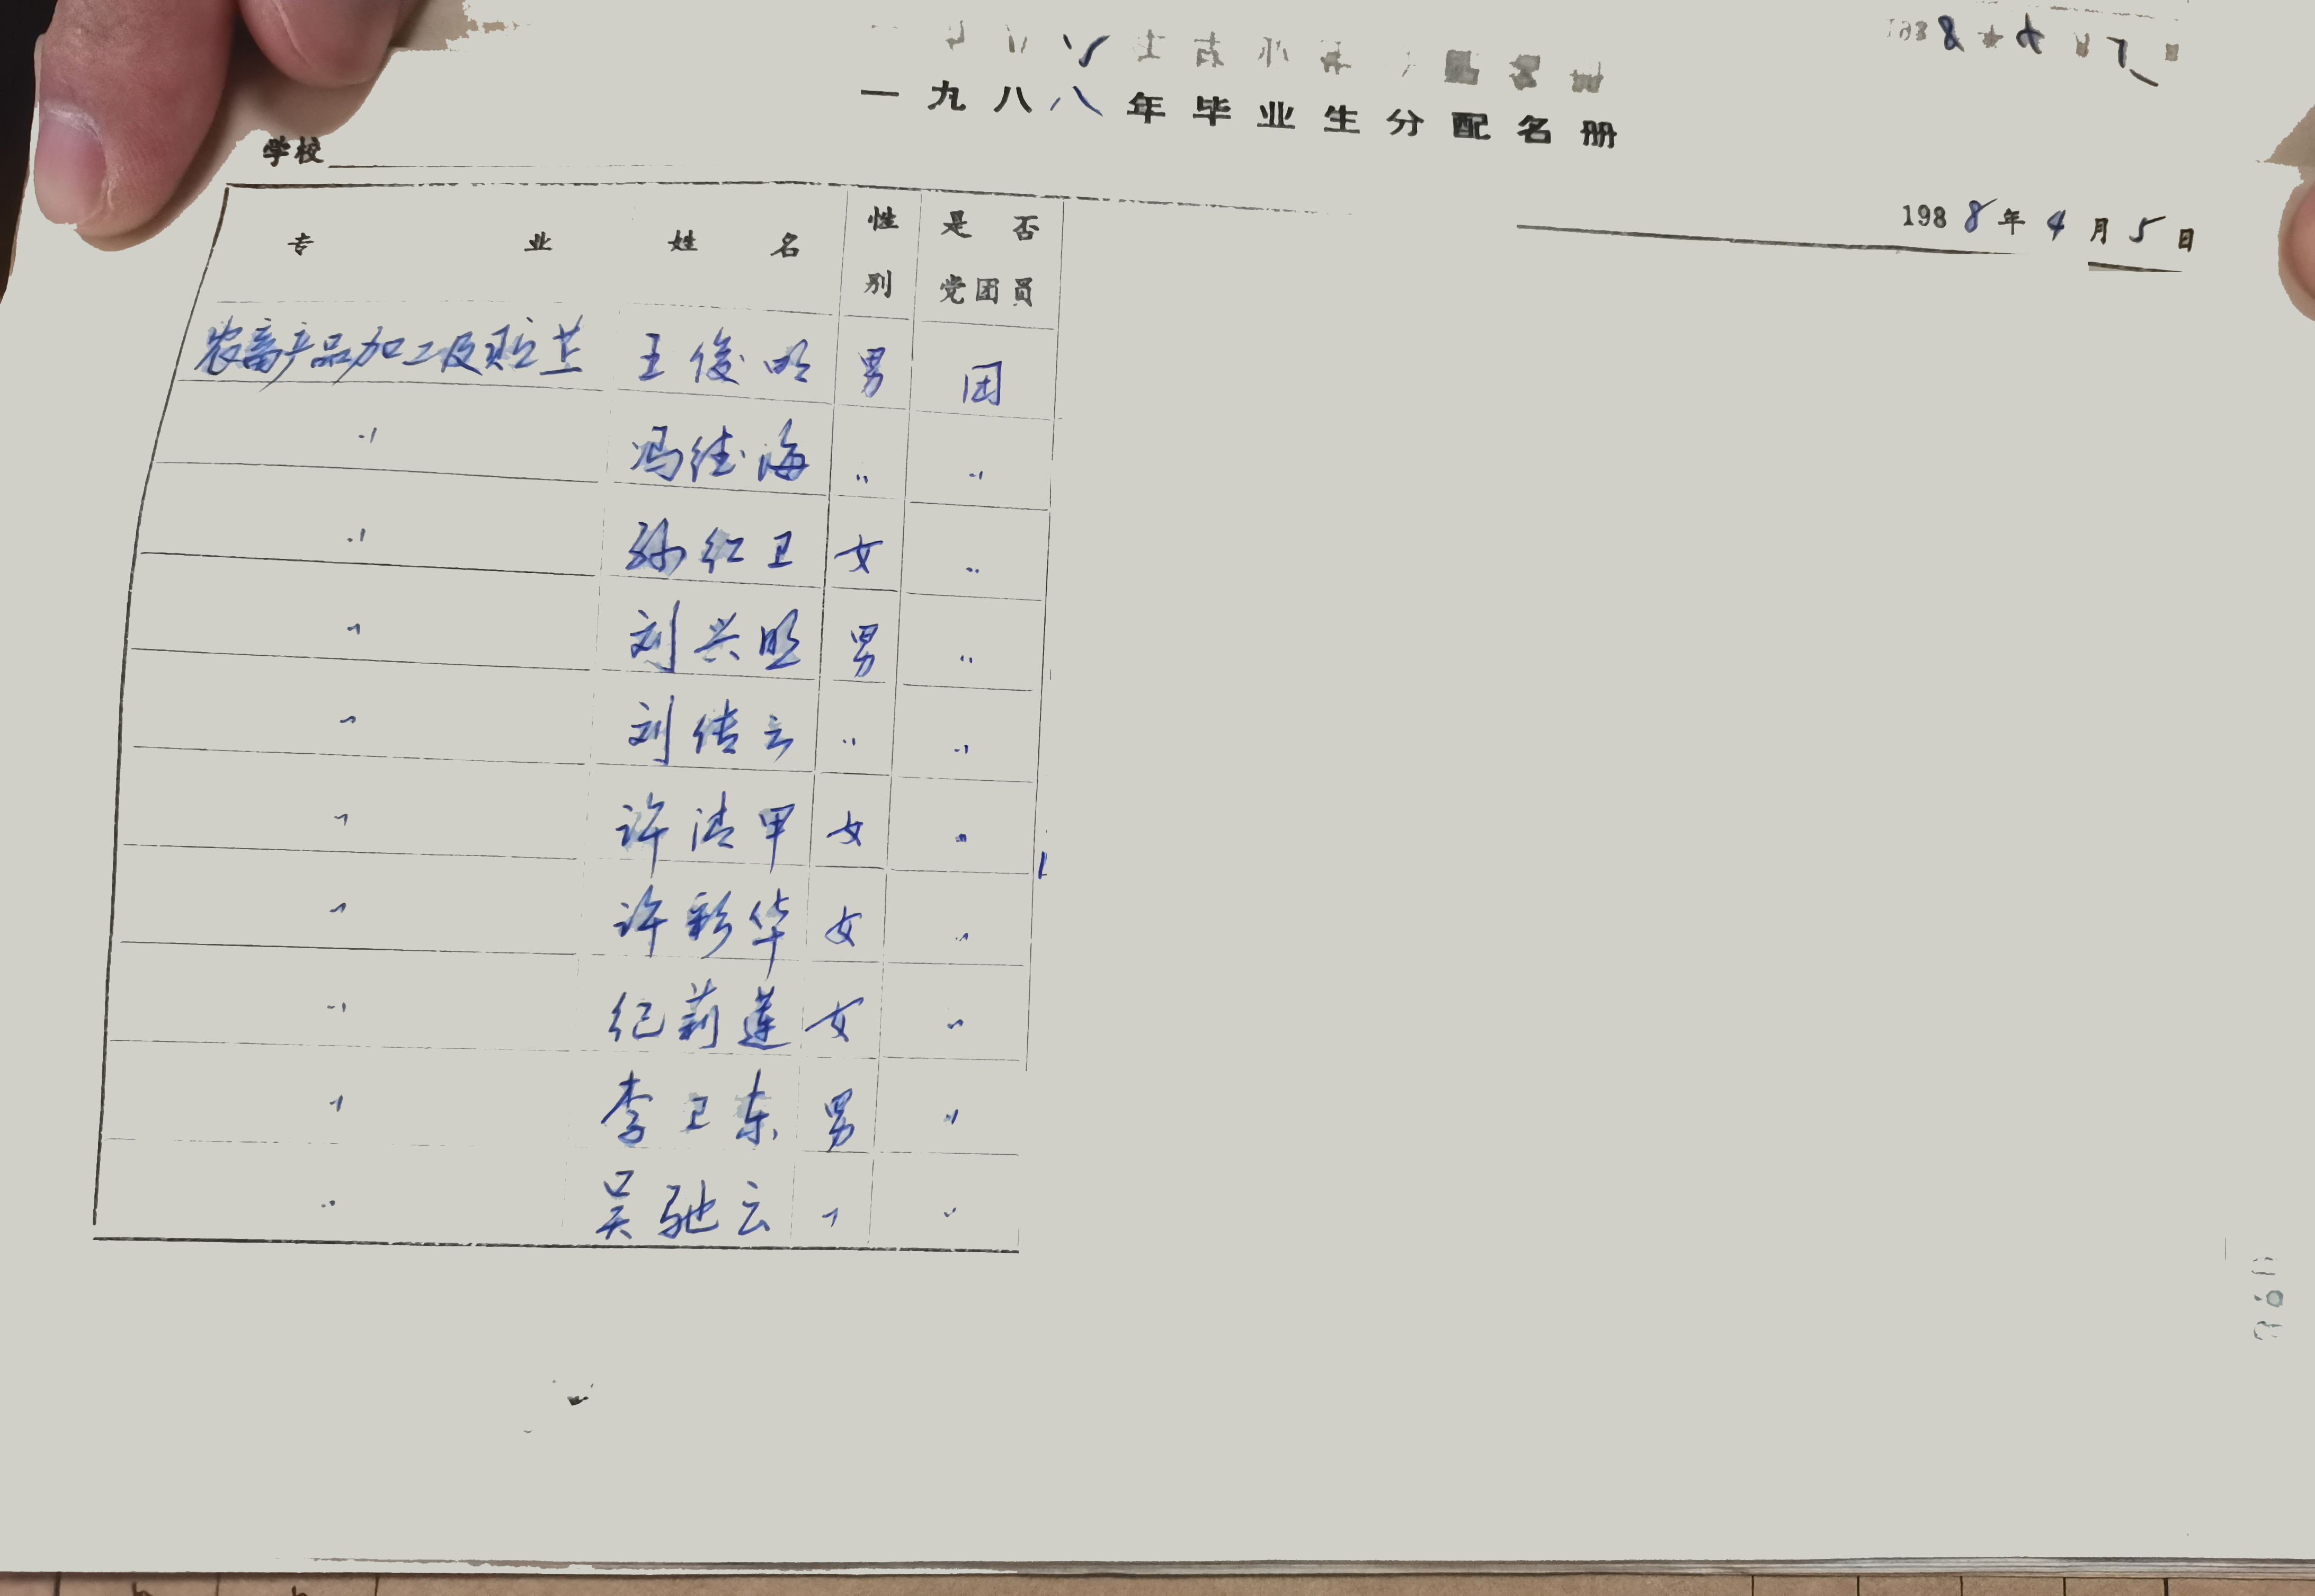 一九八八年毕业生分配名册
学校
1988年4月5日
专业 姓名 性别 是否党团员
农畜产品加工及贮芷 王俊明 男 团
〃 冯继海 〃 〃
〃 孙红卫 女 〃
〃 刘兴明 男 〃
〃 刘传云 〃 〃
〃 许清甲 女 〃
〃 许彩华 女 〃
〃 纪莉莲 女 〃
〃 李卫东 男 〃
〃 吴驰云 〃 〃